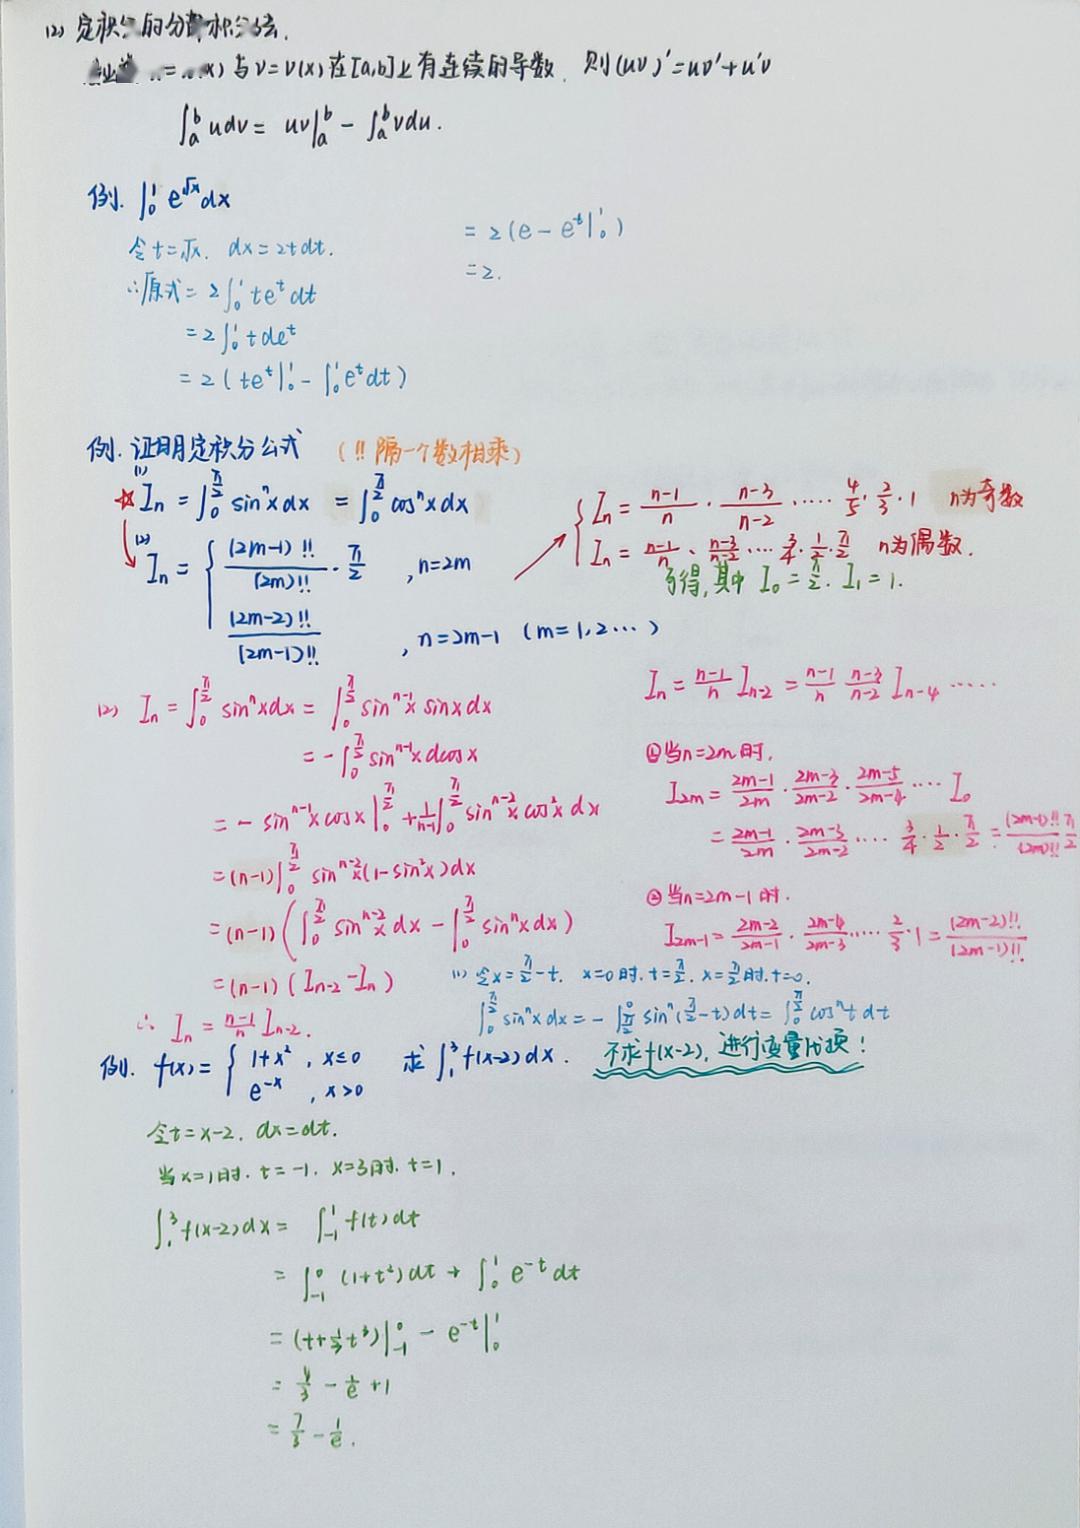 (2) 定积分的分部积分法.
x) 与 v=v(x) 在[a,b]上有连续的导数. 则(uv)'=uv'+u'v
∫_a^b udv = uv|_a^b - ∫_a^b vdu.
例. ∫_0^1 e^{√x}dx
令t=√x. dx=2tdt.
∴原式=2∫_0^1 te^t dt
=2∫_0^1 tde^t
=2(te^t|_0^1 - ∫_0^1 e^t dt)
=2(e-e^t|_0^1)
=2.
例. 证明定积分公式 (!! 隔一个数相乘)
(1) ☆ I_n = ∫_0^{π/2} sin^n x dx = ∫_0^{π/2} cos^n x dx
(2) I_n = { (2m-1)!!/(2m)!! · π/2 , n=2m
(2m-2)!!/(2m-1)!! , n=2m-1 (m=1,2…)
{ I_n = (n-1)/n · (n-3)/(n-2) ····· 4/5 · 2/3 · 1 n为奇数
I_n = (n-1)/n · (n-3)/(n-2) ···· 3/4 · 1/2 · π/2 n为偶数.
易得,其中 I_0=π/2. I_1=1.
(2) I_n = ∫_0^{π/2} sin^n xdx = ∫_0^{π/2} sin^{n-1}x sinxdx
= -∫_0^{π/2} sin^{n-1}x dcosx
= -sin^{n-1}x cosx|_0^{π/2} + ∫_0^{π/2} sin^{n-2}x cos²x dx
=(n-1)∫_0^{π/2} sin^{n-2}x(1-sin²x)dx
=(n-1)(∫_0^{π/2} sin^{n-2}x dx - ∫_0^{π/2} sin^n x dx)
=(n-1)(I_{n-2}-I_n)
∴ I_n = (n-1)/n I_{n-2}.
I_n = (n-1)/n I_{n-2} = (n-1)/n (n-3)/(n-2) I_{n-4} ·····
①当n=2m时,
I_{2m} = (2m-1)/2m · (2m-3)/(2m-2) · (2m-5)/(2m-4) ···· I_0
= (2m-1)/2m · (2m-3)/(2m-2) ···· 3/4 · 1/2 · π/2 = (2m-1)!!/(2m)!! π/2
②当n=2m-1时.
I_{2m-1} = (2m-2)/(2m-1) · (2m-4)/(2m-3) ····· 2/3 · 1 = (2m-2)!!/(2m-1)!!
(1) 令x=π/2-t. x=0时.t=π/2. x=π/2时.t=0.
∫_0^{π/2} sin^n x dx = -∫_{π/2}^0 sin^n(π/2-t)dt = ∫_0^{π/2} cos^n t dt
例. f(x) = { 1+x² , x≤0
e^{-x} , x>0
求 ∫_1^3 f(x-2)dx. 不求f(x-2), 进行变量代换!
令t=x-2. dx=dt.
当x=1时. t=-1. x=3时. t=1.
∫_1^3 f(x-2)dx = ∫_{-1}^1 f(t)dt
= ∫_{-1}^0 (1+t²)dt + ∫_0^1 e^{-t}dt
= (t+1/3 t³)|_{-1}^0 - e^{-t}|_0^1
= 4/3 - 1/e +1
= 7/3 - 1/e.